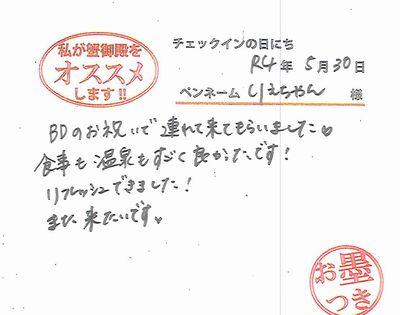 私が蟹御殿を
オススメ
します!!
チェックインの日にち
R4年 5月30日
ペンネーム りえちゃん 様
BDのお祝いで連れて来てもらいました♥
食事も温泉もすごく良かったです!
リフレッシュできました!
また来たいです♥
お墨
つき